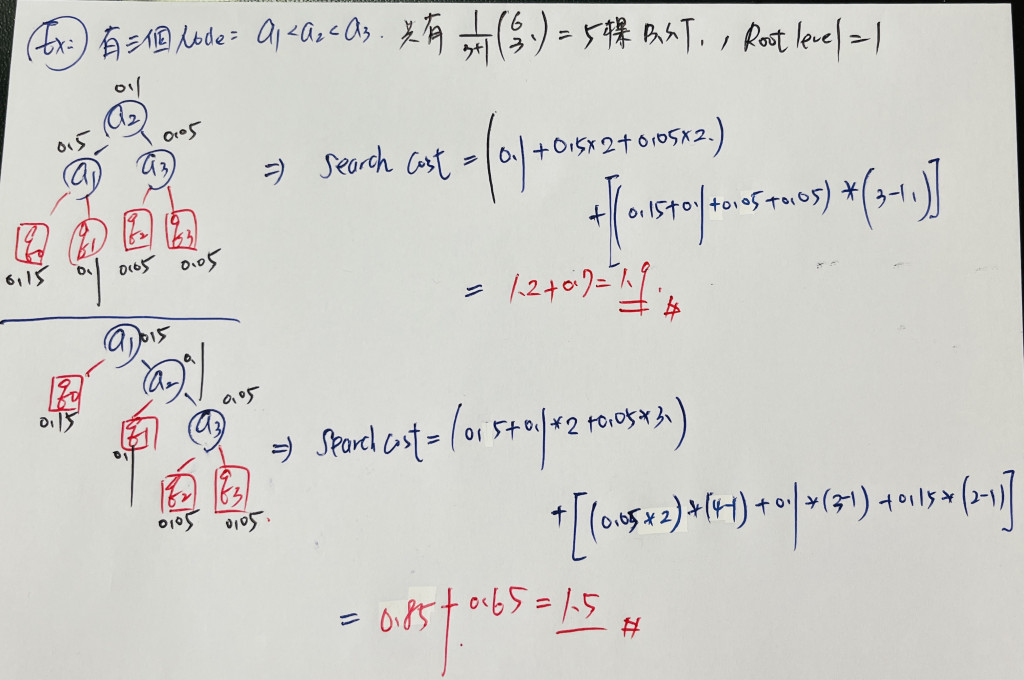 Ex: 有三個Node: a1<a2<a3. 共有 1/(3+1) (6 3) = 5棵 B.S.T., Root level = 1
0.1
a2
0.5 0.05
a1 a3
q0 q1 q2 q3
0.15 0.1 0.05 0.05
⇒ Search Cost = (0.1 + 0.5×2 + 0.05×2.)
+ [(0.15+0.1+0.05+0.05) * (3-1.)]
= 1.2+0.7=1.9. #
a1 0.5
q0 a2 0.1
0.15 q1 a3 0.05
0.1 q2 q3
0.05 0.05.
⇒ Search Cost = (0.5+0.1*2+0.05*3.)
+ [(0.05*2)*(4-1)+0.1*(3-1)+0.15*(2-1)]
= 0.85+0.65=1.5 #